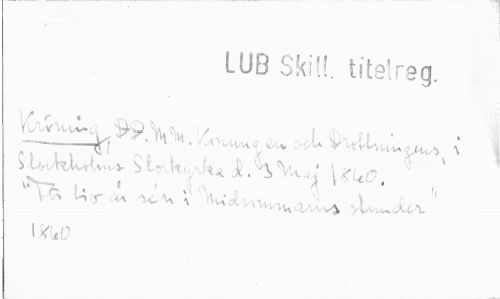 LUB Skill. titelreg.
Kröning, DD. MM. Konungen och Drottningens, i
Stockholms Storkyrka d. 3 Maj 1860.
"Ditt liv är så i Midsommarns stunder"
1860